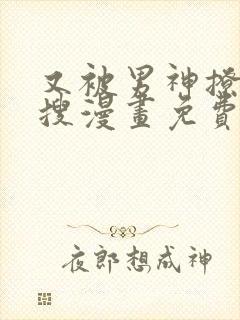 又被男神撩
搜漫畫免費
夜郎想成神